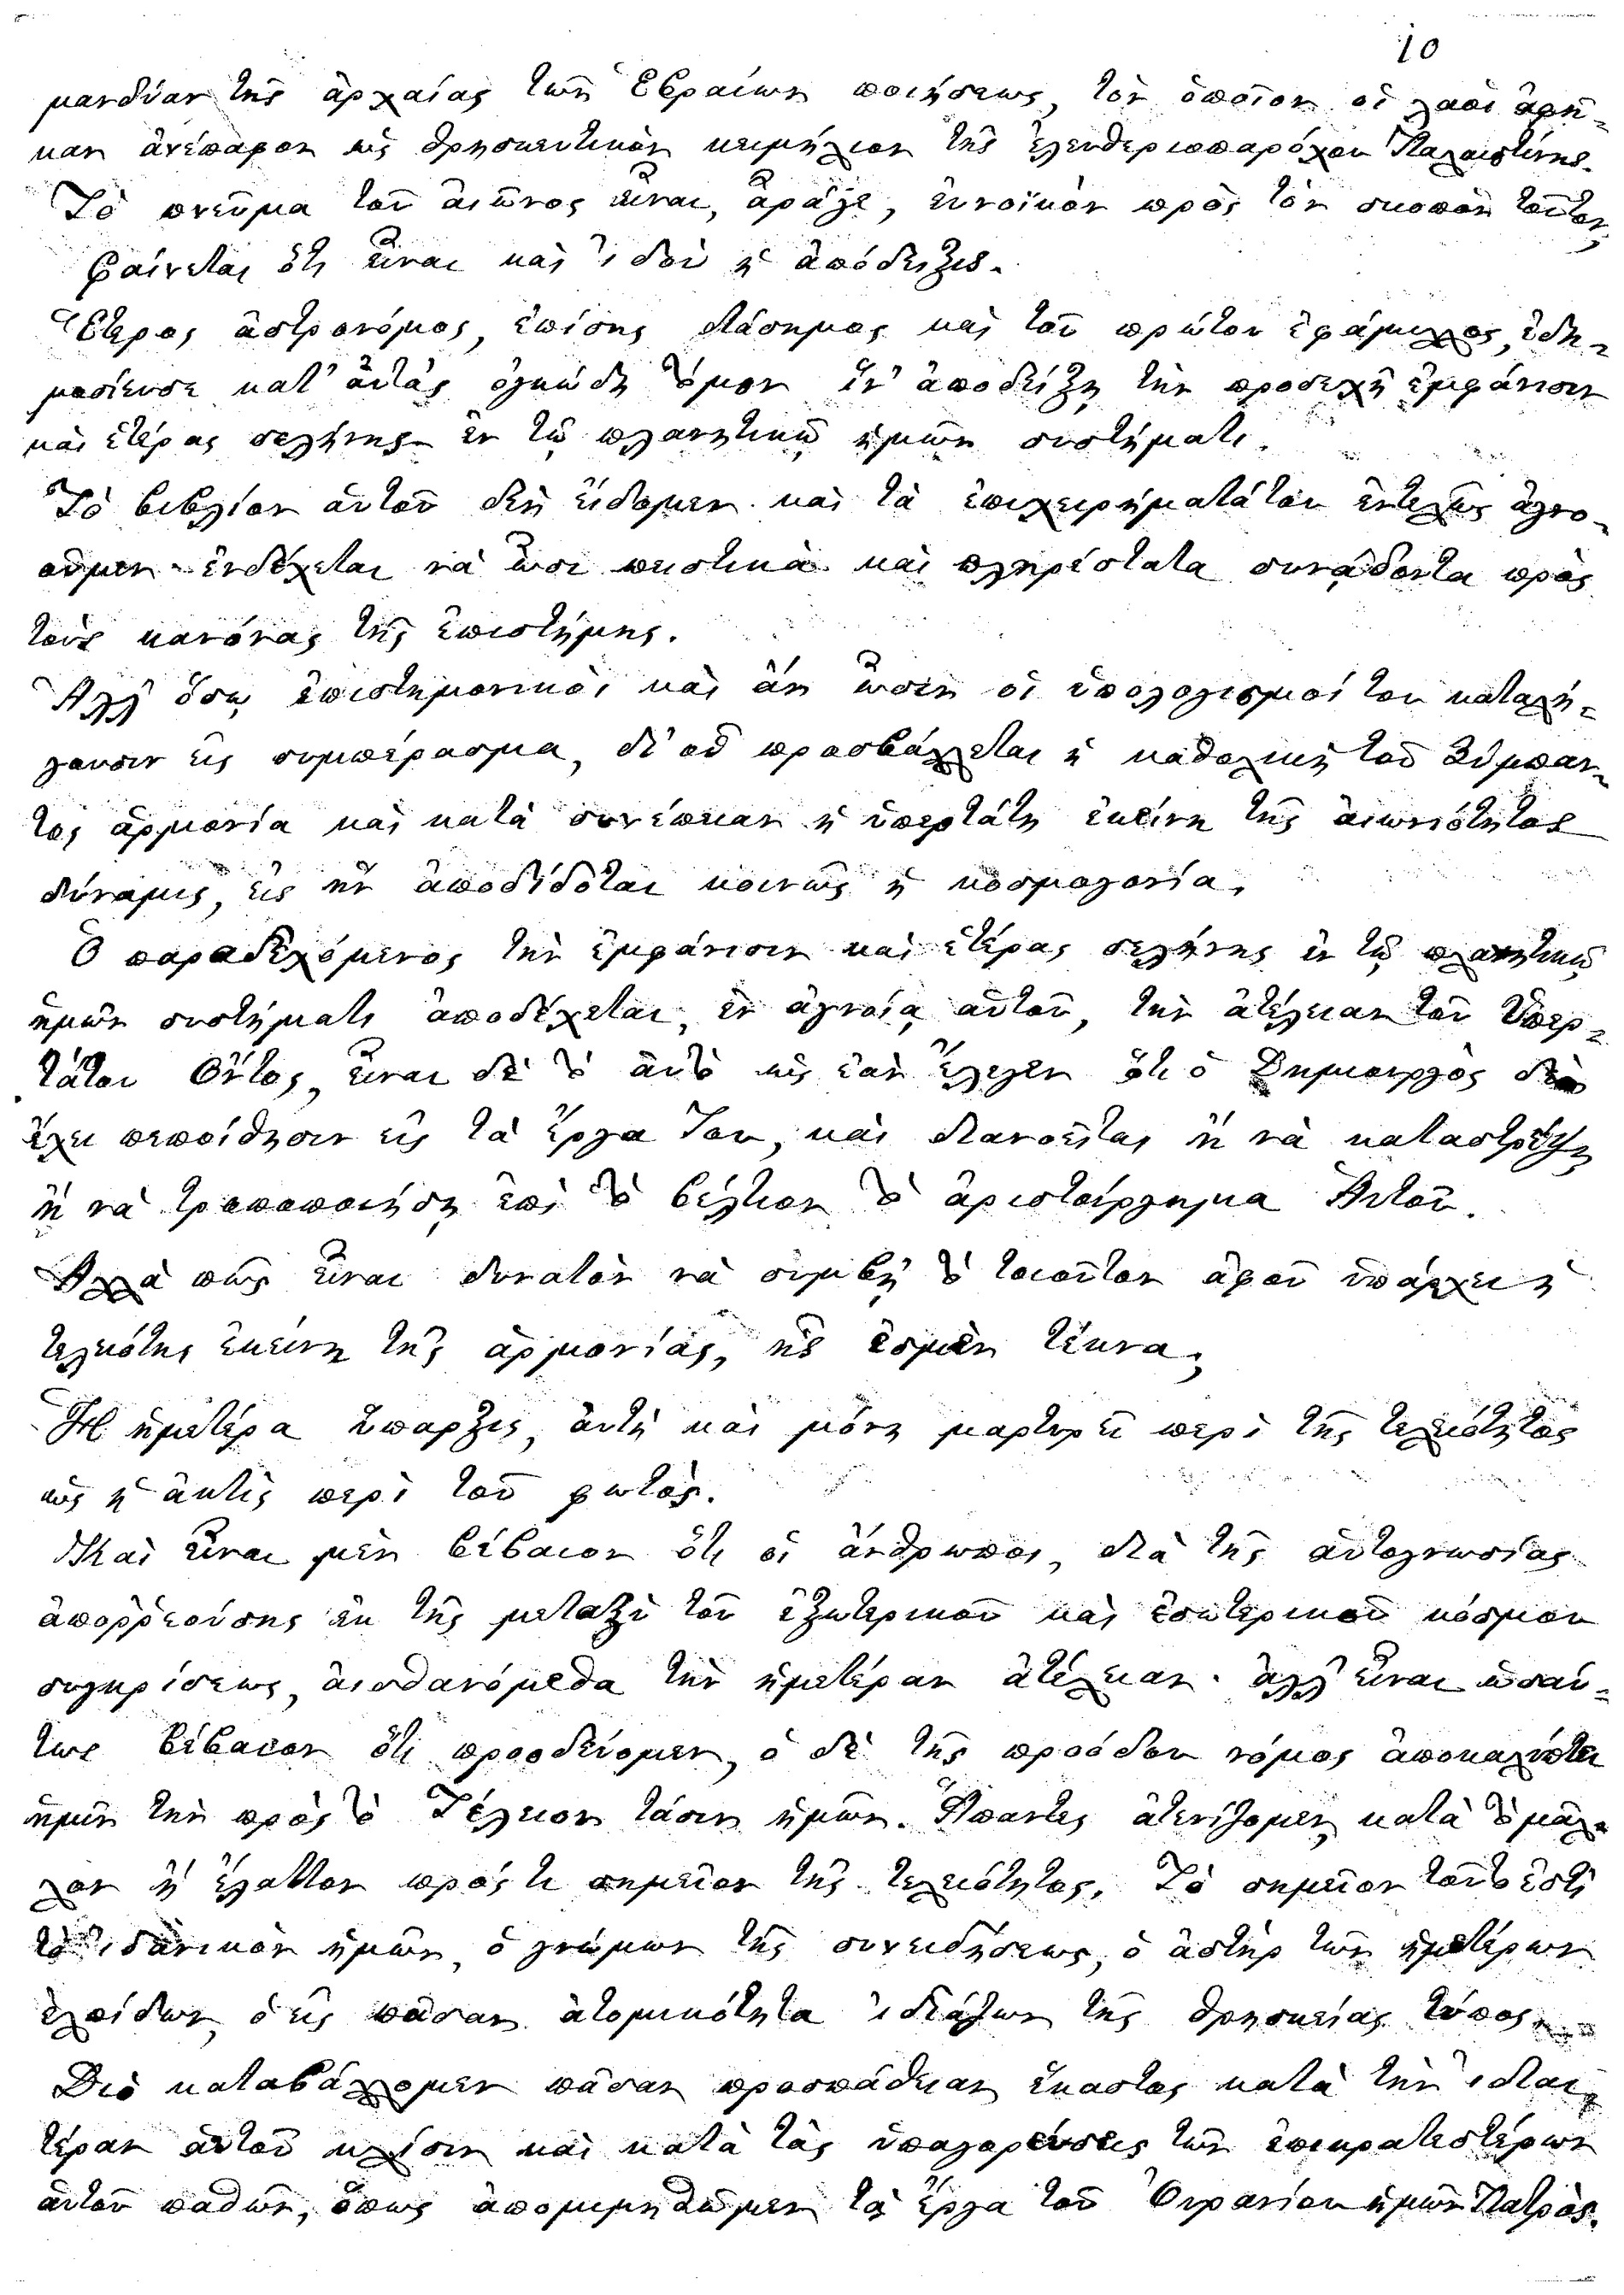 10
μανδύαν τῆς ἀρχαίας τῶν Ἑβραίων ποιήσεως, τὸν ὁποῖον οἱ λαοὶ ἀφῆ-
καν ἀνέπαφον ὡς θρησκευτικὸν κειμήλιον τῆς ἐλευθεριοπαρόχου Παλαιστίνης.
Τὸ πνεῦμα τοῦ αἰῶνος εἶναι, ἀράγε, εὐνοϊκὸν πρὸς τὸν σκοπὸν τοῦτον;
Φαίνεται ὅτι εἶναι καὶ ἰδοὺ ἡ ἀπόδειξις.
Ἕτερος ἀστρονόμος, ἐπίσης διάσημος καὶ τοῦ πρώτου ἐφάμιλλος, ἐδη-
μοσίευσε κατ' αὐτὰς ὀγκώδη τόμον ἵν' ἀποδείξῃ τὴν προσεχῆ ἐμφάνισιν
καὶ ἑτέρας σελήνης ἐν τῷ πλανητικῷ ἡμῶν συστήματι.
Τὸ βιβλίον αὐτοῦ δὲν εἴδομεν καὶ τὰ ἐπιχειρήματά του ἐντελῶς ἀγνο-
οῦμεν· ἐνδέχεται νὰ ὦσι πειστικὰ καὶ πληρέστατα συνᾴδοντα πρὸς
τοὺς κανόνας τῆς ἐπιστήμης.
Ἀλλ' ὅσῳ ἐπιστημονικοὶ καὶ ἂν ὦσιν οἱ ὑπολογισμοί του καταλή-
γουσιν εἰς συμπέρασμα, δι' οὗ προσβάλλεται ἡ καθολικὴ τοῦ Σύμπαν-
τος ἁρμονία καὶ κατὰ συνέπειαν ἡ ὑπερτάτη ἐκείνη τῆς αἰωνιότητος
δύναμις, εἰς ἣν ἀποδίδοται κοινῶς ἡ κοσμογονία.
Ὁ παραδεχόμενος τὴν ἐμφάνισιν καὶ ἑτέρας σελήνης ἐν τῷ πλανητικῷ
ἡμῶν συστήματι ἀποδέχεται, ἐν ἀγνοίᾳ αὐτοῦ, τὴν ἀτέλειαν τοῦ Ὑπερ-
τάτου Ὄντος, εἶναι δὲ τὸ αὐτὸ ὡς ἐὰν ἔλεγεν ὅτι ὁ Δημιουργὸς δὲν
ἔχει πεποίθησιν εἰς τὰ ἔργα Του, καὶ διανοεῖται ἢ νὰ καταστρέψῃ
ἢ νὰ τροποποιήσῃ ἐπὶ τὸ βέλτιον τὸ ἀριστούργημα Αὐτοῦ.
Ἀλλὰ πῶς εἶναι δυνατὸν νὰ συμβῇ τὸ τοιοῦτον ἀφοῦ ὑπάρχει ἡ
τελειότης ἐκείνη τῆς ἁρμονίας, ἧς ἐσμὲν τέκνα;
Ἡ ἡμετέρα ὕπαρξις, αὐτὴ καὶ μόνη μαρτυρεῖ περὶ τῆς τελειότητος
ὡς ἡ ἀκτὶς περὶ τοῦ φωτός.
Καὶ εἶναι μὲν βέβαιον ὅτι οἱ ἄνθρωποι, διὰ τῆς αὐτογνωσίας
ἀπορρεούσης ἐκ τῆς μεταξὺ τοῦ ἐξωτερικοῦ καὶ ἐσωτερικοῦ κόσμου
συγκρίσεως, αἰσθανόμεθα τὴν ἡμετέραν ἀτέλειαν· ἀλλ' εἶναι ὡσαύ-
τως βέβαιον ὅτι προοδεύομεν, ὁ δὲ τῆς προόδου νόμος ἀποκαλύπτει
ἡμῖν τὴν πρὸς τὸ Τέλειον τάσιν ἡμῶν. Ἅπαντες ἀτενίζομεν κατὰ τὸ μᾶλ-
λον ἢ ἔλαττον πρός τι σημεῖον τῆς τελειότητος. Τὸ σημεῖον τοῦτο ἐστὶ
τὸ ἰδανικὸν ἡμῶν, ὁ γνώμων τῆς συνειδήσεως, ὁ ἀστὴρ τῶν ἡμετέρων
ἐλπίδων, ὁ εἰς πᾶσαν ἀτομικότητα ἰδιάζων τῆς θρησκείας τύπος.
Διὸ καταβάλλομεν πᾶσαν προσπάθειαν ἕκαστος κατὰ τὴν ἰδιαι-
τέραν αὐτοῦ κλίσιν καὶ κατὰ τὰς ὑπαγορεύσεις τῶν ἐπικρατεστέρων
αὐτοῦ παθῶν, ὅπως ἀπομιμηθῶμεν τὰ ἔργα τοῦ Οὐρανίου ἡμῶν Πατρός.